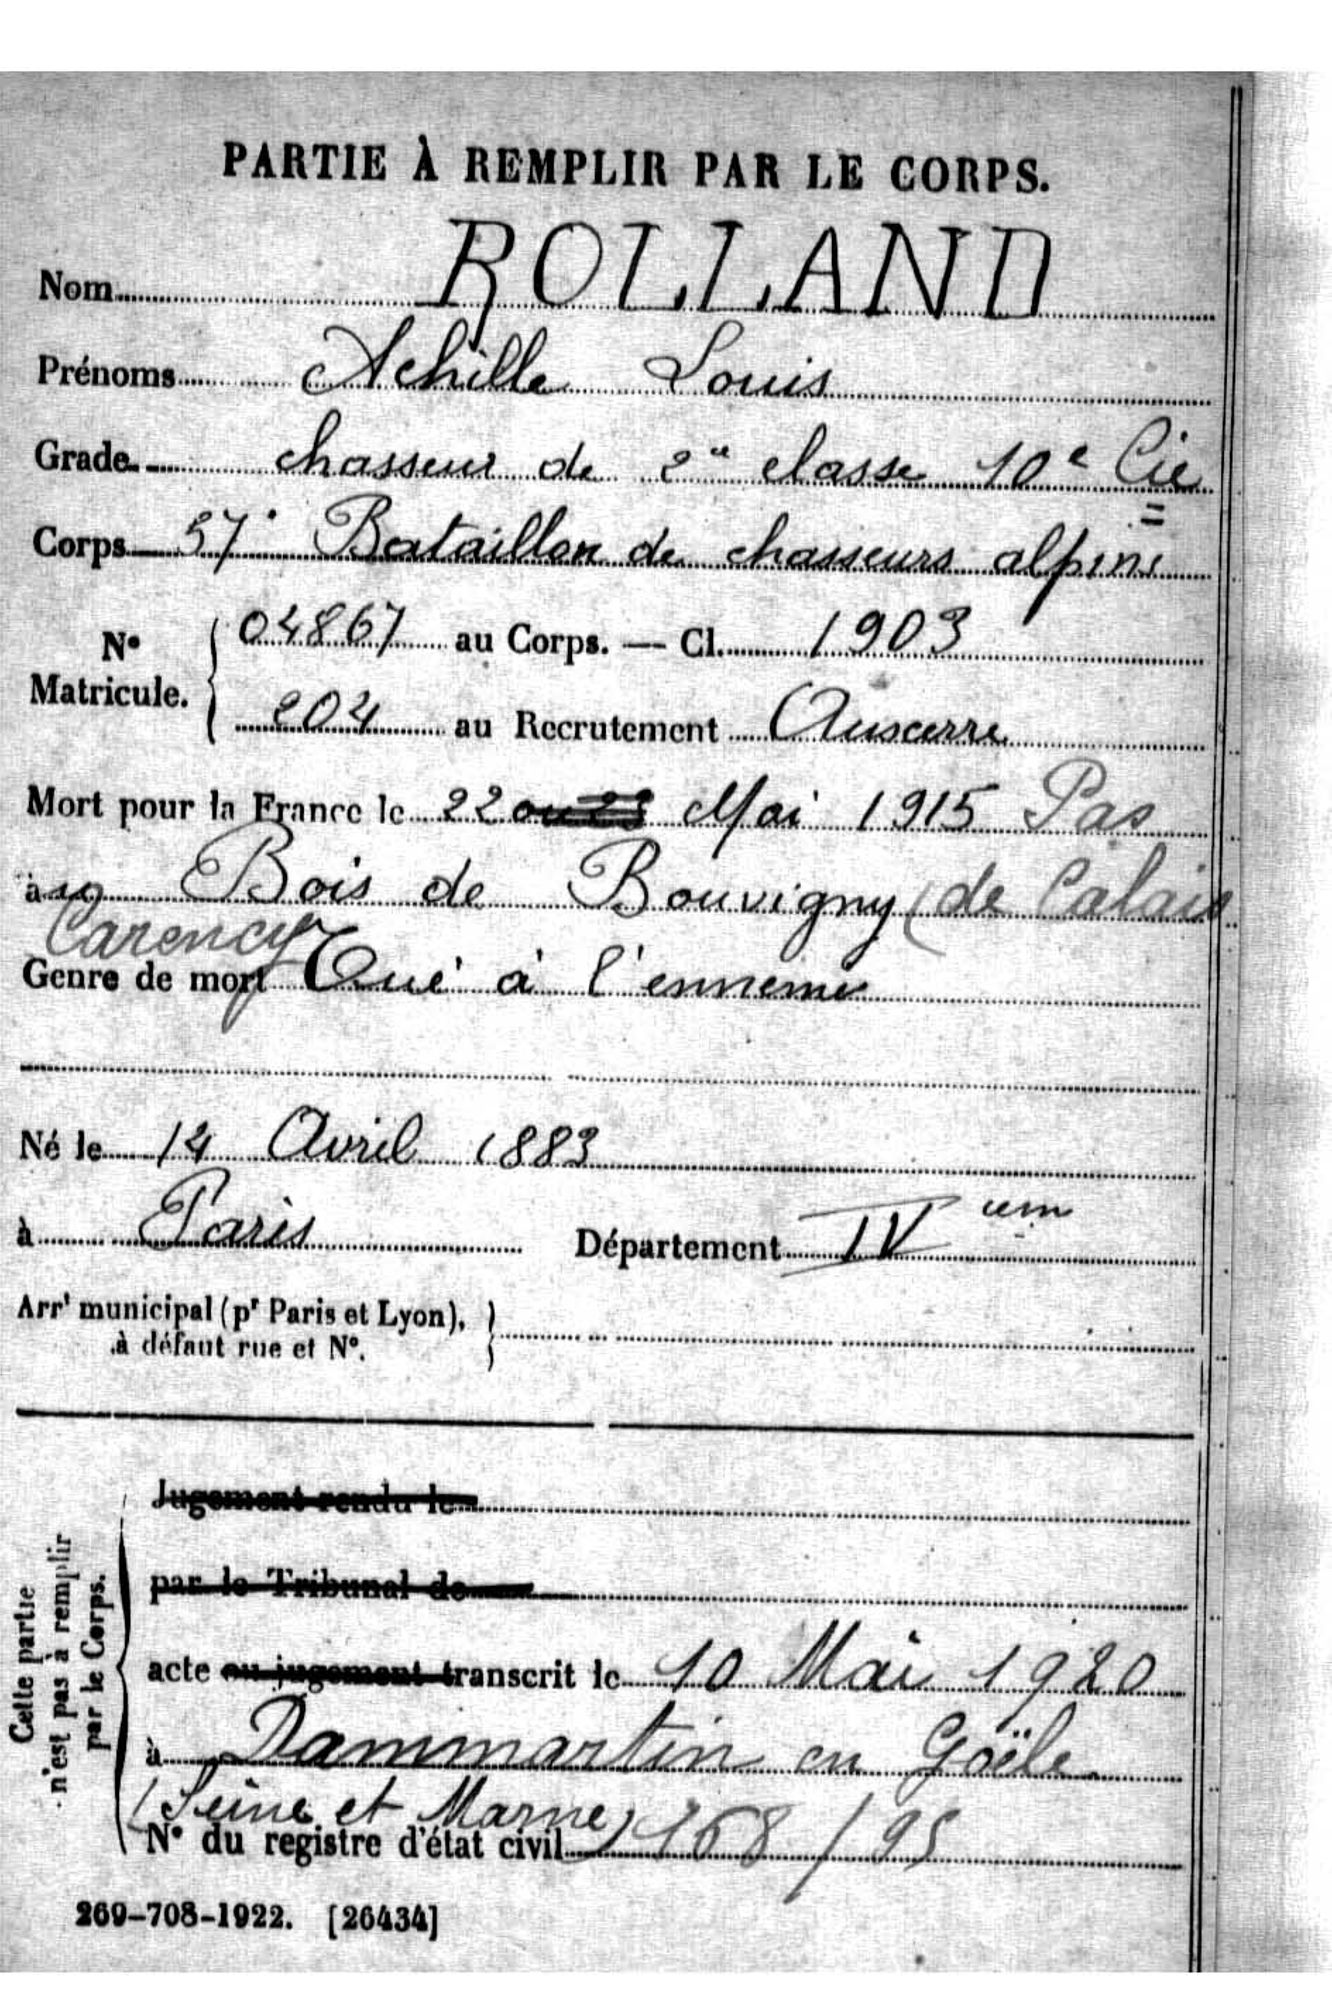 PARTIE À REMPLIR PAR LE CORPS.
Nom ROLLAND
Prénoms Achille Louis
Grade chasseur de 2e classe 10e Cie
Corps 57e Bataillon de chasseurs alpins
N° Matricule. 04867 au Corps. — Cl. 1903
204 au Recrutement Auxerre
Mort pour la France le 22 ou 23 Mai 1915 Pas
à Bois de Bouvigny (de Calais
Carency
Genre de mort Tué à l'ennemi
Né le 14 Avril 1883
à Paris Département IV em
Arrt municipal (pr Paris et Lyon),
à défaut rue et N°.
Cette partie
n'est pas à remplir
par le Corps.
Jugement rendu le
par le Tribunal de
acte ou jugement transcrit le 10 Mai 1920
à Dammartin en Goële
(Seine et Marne)
N° du registre d'état civil 168/95
269-708-1922. [26434]